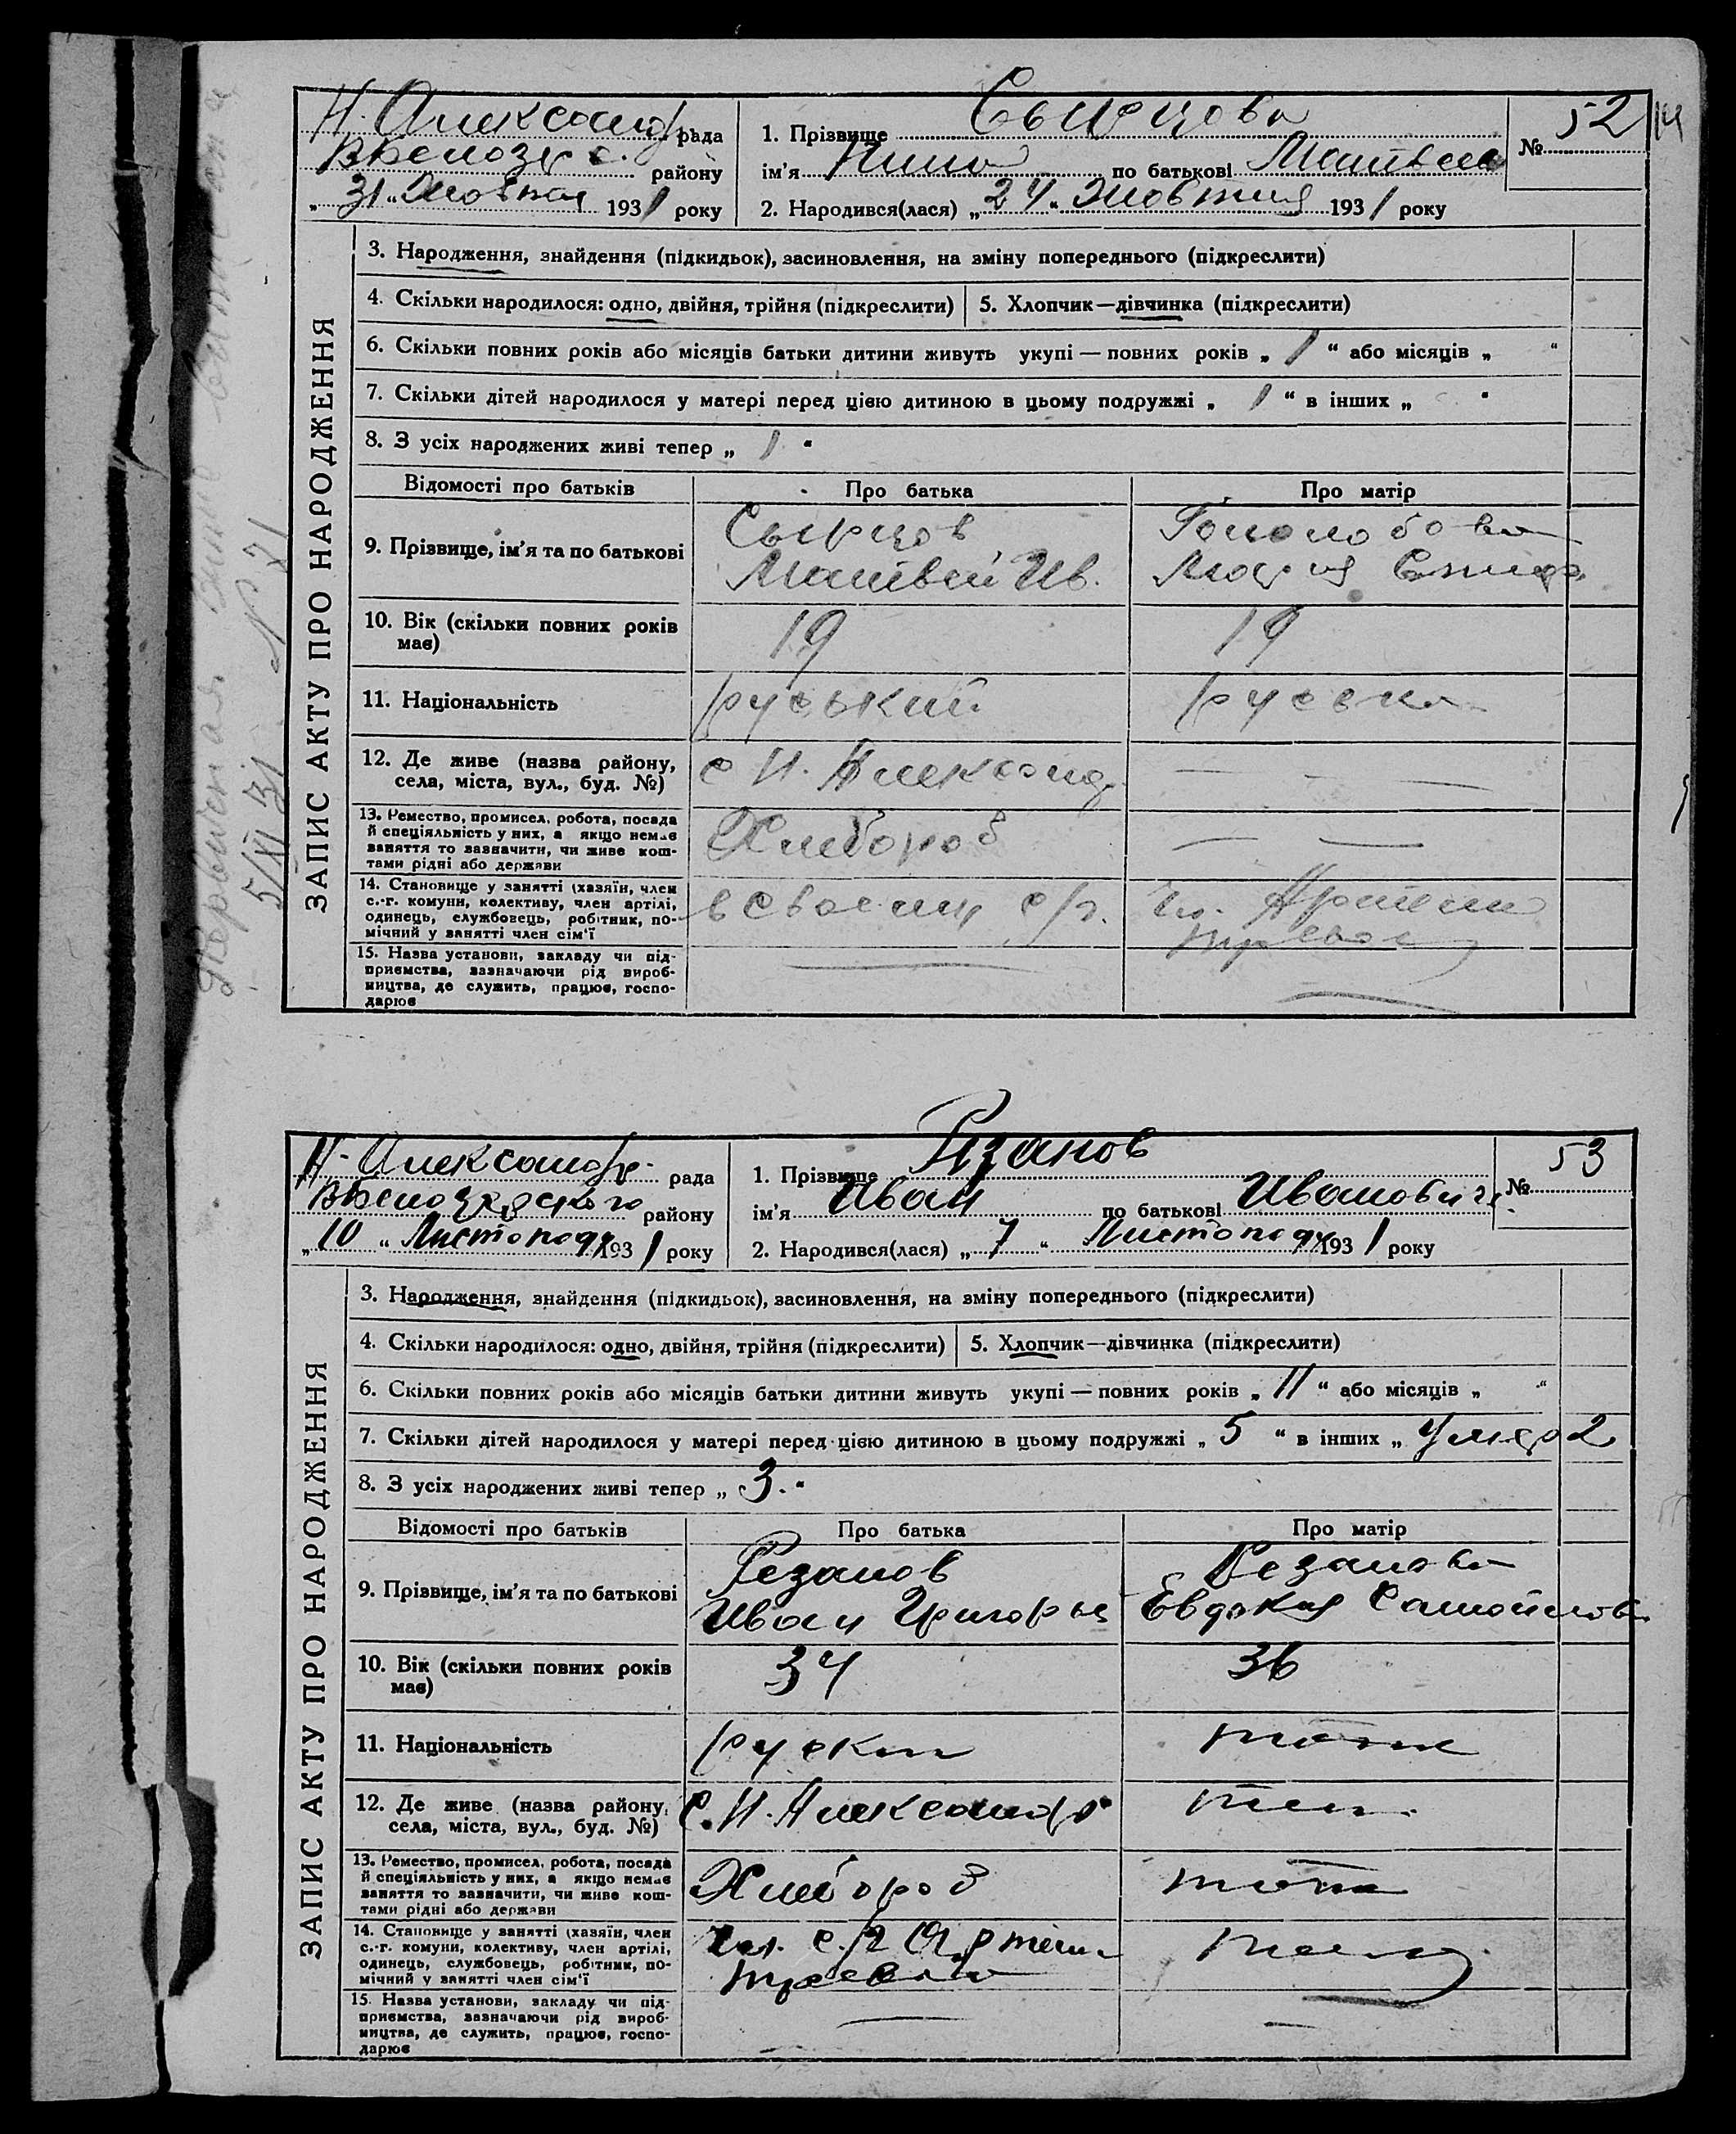 Н. Александр. рада
В Белозер. району
„31“ Жовтня 1931 року
1. Прізвище Сырцова
ім'я Нина по батькові Матвеев
2. Народився(лася) „24“ Жовтня 1931 року
№ 52
ЗАПИС АКТУ ПРО НАРОДЖЕННЯ
3. Народження, знайдення (підкидьок), засиновлення, на зміну попереднього (підкреслити)
4. Скільки народилося: одно, двійня, трійня (підкреслити)
5. Хлопчик—дівчинка (підкреслити)
6. Скільки повних років або місяців батьки дитини живуть укупі — повних років „ 1 “ або місяців „ “
7. Скільки дітей народилося у матері перед цією дитиною в цьому подружжі „ 1 “ в інших „ “
8. З усіх народжених живі тепер „ 1 “
Відомості про батьків Про батька Про матір
9. Прізвище, ім'я та по батькові
Сырцов
Матвей Ив.
Мария
10. Вік (скільки повних років
має)
19 19
11. Національність руський руська
12. Де живе (назва району,
села, міста, вул., буд. №)
с Н. Александ. — — —
13. Ремество, промисел, робота, посада
й спеціяльність у них, а якщо немає
заняття то зазначити, чи живе кош-
тами рідні або держави
Хлебороб — —
14. Становище у занятті (хазяїн, член
с.-г. комуни, колективу, член артілі,
одинець, службовець, робітник, по-
мічний у занятті член сім'ї
в своему с/г. Чл. Артели
15. Назва установи, закладу чи під-
приємства, зазначаючи рід вироб-
ництва, де служить, працює, госпо-
дарює
5/XI 31 №71
Н. Александр. рада
В Белозерского району
„10“ Листопада 1931 року
1. Прізвище Рязанов
ім'я Иван по батькові Иванович
2. Народився(лася) „7“ Листопада 1931 року
№ 53
ЗАПИС АКТУ ПРО НАРОДЖЕННЯ
3. Народження, знайдення (підкидьок), засиновлення, на зміну попереднього (підкреслити)
4. Скільки народилося: одно, двійня, трійня (підкреслити)
5. Хлопчик—дівчинка (підкреслити)
6. Скільки повних років або місяців батьки дитини живуть укупі — повних років „ 11 “ або місяців „ “
7. Скільки дітей народилося у матері перед цією дитиною в цьому подружжі „ 5 “ в інших „ умер 2
8. З усіх народжених живі тепер „ 3. “
Відомості про батьків Про батька Про матір
9. Прізвище, ім'я та по батькові
Резанов
Иван Григорьев
Резанова
Евдокия Самойлов
10. Вік (скільки повних років
має)
34 36
11. Національність руски тоже
12. Де живе (назва району,
села, міста, вул., буд. №)
С. Н. Александр
13. Ремество, промисел, робота, посада
й спеціяльність у них, а якщо немає
заняття то зазначити, чи живе кош-
тами рідні або держави
Хлебороб тоже
14. Становище у занятті (хазяїн, член
с.-г. комуни, колективу, член артілі,
одинець, службовець, робітник, по-
мічний у занятті член сім'ї
Чл. с/г Артели
15. Назва установи, закладу чи під-
приємства, зазначаючи рід вироб-
ництва, де служить, працює, госпо-
дарює